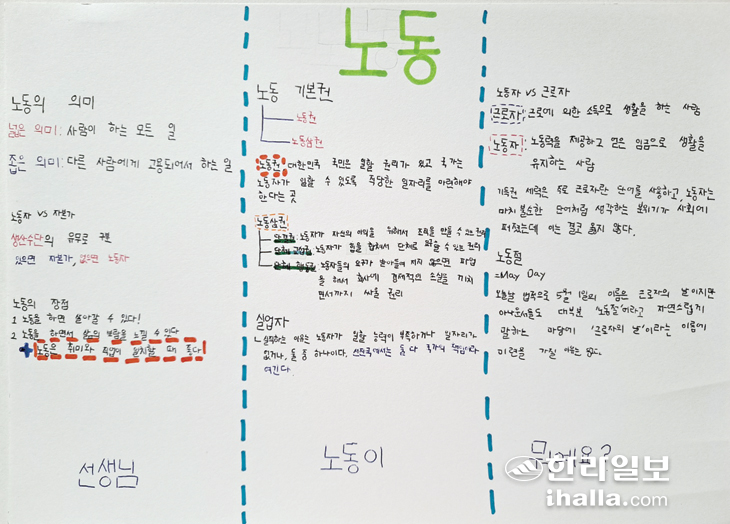 노동
노동의 의미
넓은 의미: 사람이 하는 모든 일
좁은 의미: 다른 사람에게 고용되어서 하는 일
노동자 vs 자본가
생산수단의 유무로 구분
있으면 자본가, 없으면 노동자
노동의 장점
1 노동을 하면 살아갈 수 있다!
2 노동을 하면서 삶의 보람을 느낄 수 있다
+ 노동은 취미와 직업이 일치할 때 좋다!
선생님
노동 기본권
노동권
노동삼권
노동권 대한민국 국민은 일할 권리가 있고 국가는
노동자가 일할 수 있도록 적당한 일자리를 마련해야
한다는 것
노동삼권
단결권 노동자가 자신의 이익을 위해서 조직을 만들 수 있는 권리
단체 교섭권 노동자가 힘을 합쳐서 단체로 요구할 수 있는 권리
단체 행동권 노동자들의 요구가 받아들여 지지 않으면 파업
을 해서 회사에게 경제적인 손실을 끼치
면서까지 싸울 권리
실업자
ㄴ실직하는 이유는 노동자가 일할 능력이 부족하거나 일자리가
없거나, 둘 중 하나이다. 선진국에서는 둘 다 국가의 책임이라
여긴다.
노동이
노동자 vs 근로자
근로자: 근로에 의한 소득으로 생활을 하는 사람
노동자: 노동력을 제공하고 얻은 임금으로 생활을
유지하는 사람
기득권 세력은 주로 근로자란 단어를 사용하고, 노동자는
마치 불순한 단어처럼 생각하는 분위기가 사회에
퍼졌는데 이는 결코 옳지 않다.
노동절
=May Day
오늘날 법적으로 5월 1일의 이름은 근로자의 날이지만
아나운서들도 대부분 '노동절'이라고 자연스럽게
말하는 마당에 '근로자의 날'이라는 이름에
미련을 가질 이유는 없다.
뭐예요?
한라일보
ihalla.com